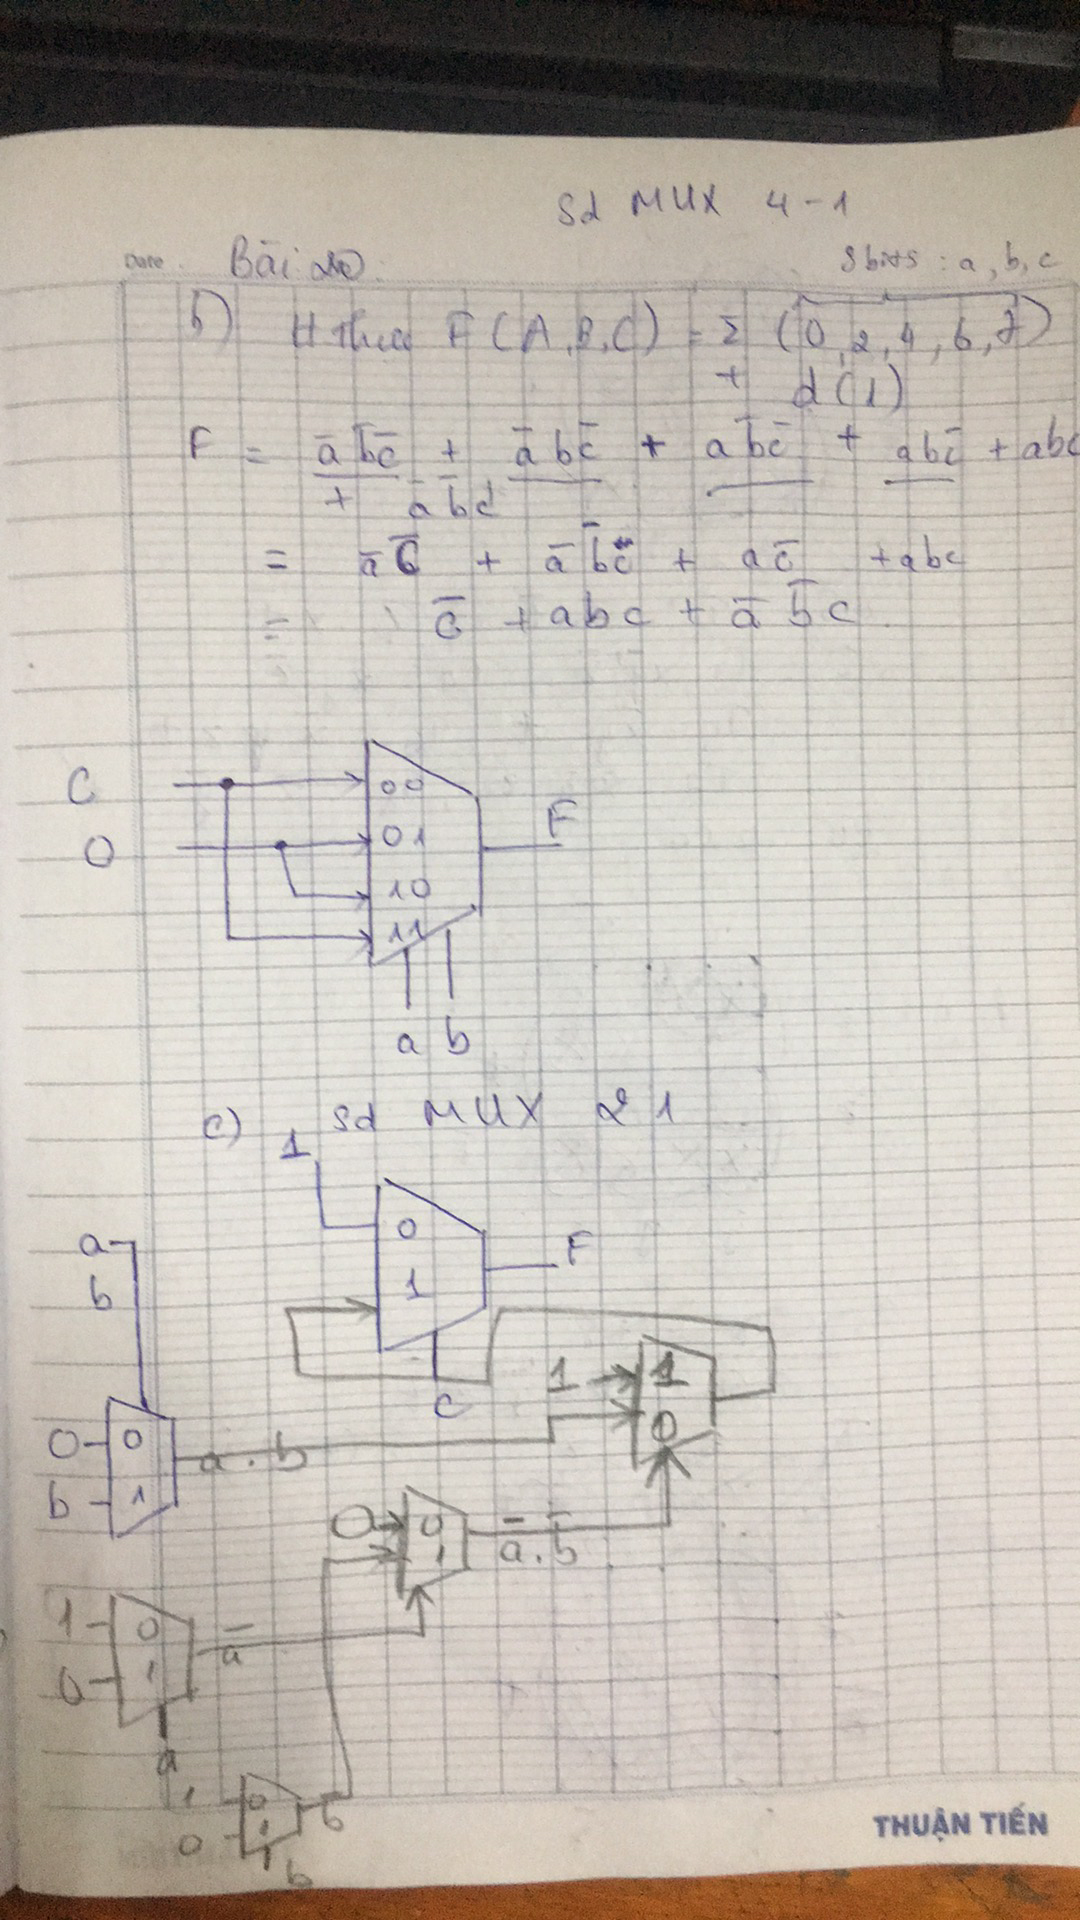 Sd MUX 4-1
Date Bài 20 3 bits : a, b, c
b) H thức F(A,B,C) = Σ (0,2,4,6,7)
+ d(1)
F = a̅b̅c̅ + a̅bc̅ + ab̅c̅ + abc̅ + abc
+ a̅b̅c
= a̅c̅ + a̅b̅c + ac̅ + abc
= c̅ + abc + a̅b̅c
C 00
0 01 F
10
11
a b
c) Sd MUX 2 1
1
0 F
a
b 1
1 1
C
0 0 a.b 0
b 1
0 0 a̅.b̅
1
1 0 a̅
0 1
a
1 0 b
0 1
b
THUẬN TIẾN